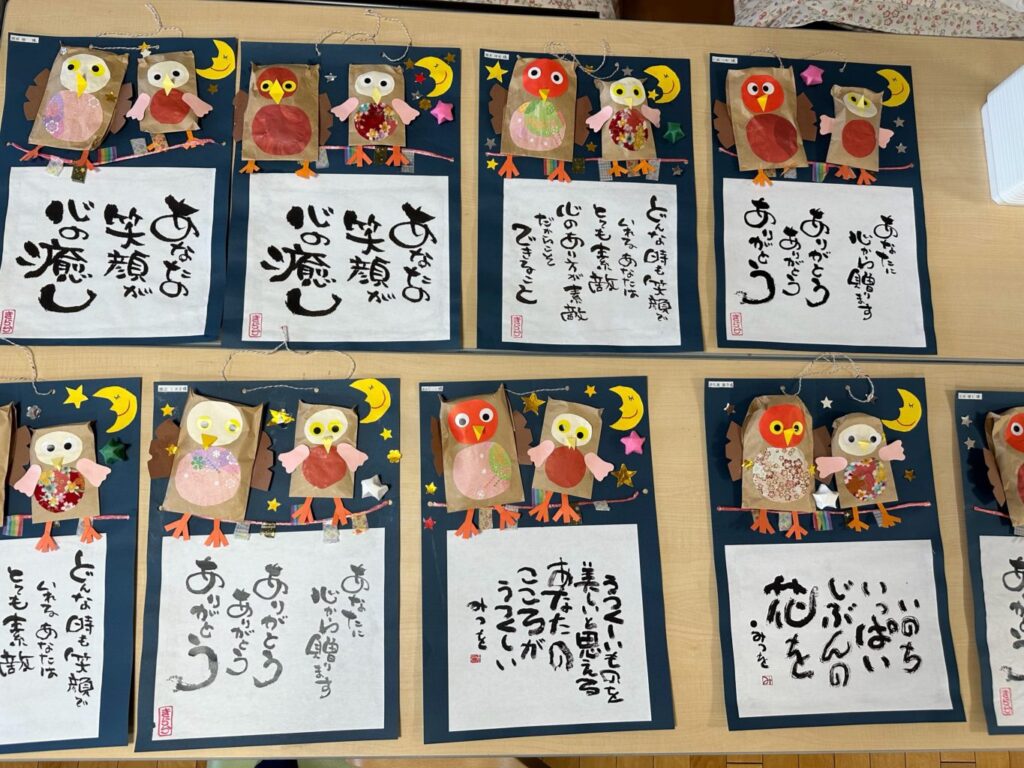 あなたの
笑顔が
心の癒し
きらり
あなたの
笑顔が
心の癒し
きらり
どんな時も笑顔で
いれるあなたは
とても素敵
心のあり方が素敵
だからこそ
できること
きらり
あなたに
心から贈ります
ありがとう
ありがとう
ありがとう
きらり
どんな時も笑顔で
いれるあなたは
とても素敵
あなたに
心から贈ります
ありがとう
ありがとう
ありがとう
きらり
うつくしいものを
美しいと思える
あなたの
こころが
うつくしい
みつを
いのち
いっぱい
じぶんの
花を
みつを